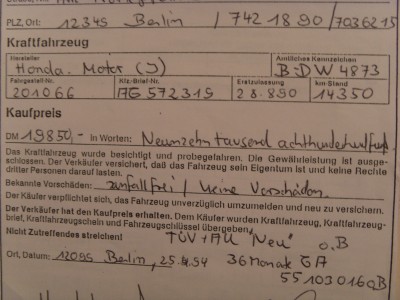 PLZ, Ort: 12345 Berlin / 742 18 90 / 7036215
Kraftfahrzeug
Hersteller Amtliches Kennzeichen
Honda Motor (J) B-DW 4873
Fahrgestell-Nr. Kfz.-Brief-Nr. Erstzulassung km-Stand
201066 AG 572319 28.890 14350
Kaufpreis
DM 19850,- in Worten: Neunzehntausend achthundertundfünf
Das Kraftfahrzeug wurde besichtigt und probegefahren. Die Gewährleistung ist ausge-
schlossen. Der Verkäufer versichert, daß das Fahrzeug sein Eigentum ist und keine Rechte
dritter Personen darauf lasten.
Bekannte Vorschäden: unfallfrei / keine Vorschäden
Der Käufer verpflichtet sich, das Fahrzeug unverzüglich umzumelden und neu zu versichern.
Der Verkäufer hat den Kaufpreis erhalten. Dem Käufer wurden Kraftfahrzeug, Kraftfahrzeug-
brief, Kraftfahrzeugschein und Fahrzeugschlüssel übergeben
Nicht Zutreffendes streichen! TÜV + AU "Neu" o.B
Ort, Datum: 12095 Berlin, 36 Monate
551030160B